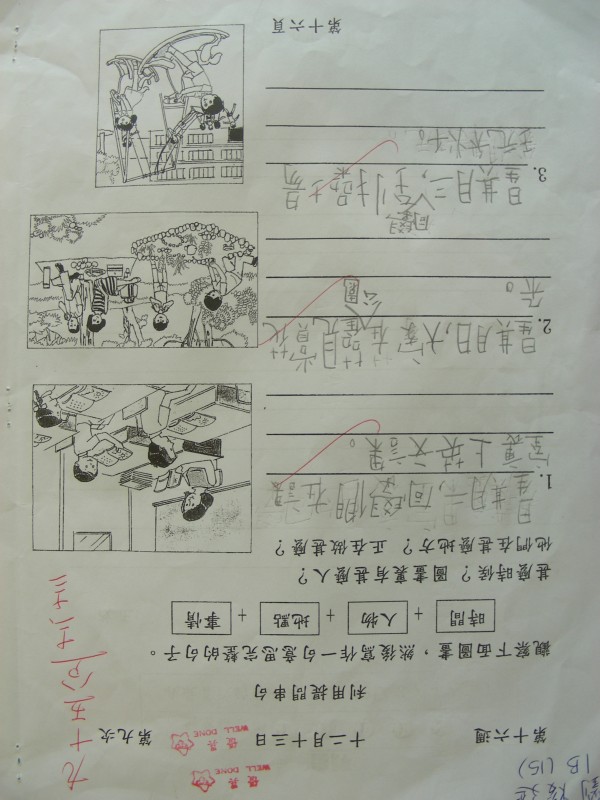 1B (15)
第十六週 十二月十三日 第九次
優異
WELL DONE
優異
WELL DONE
九十五分
利用提問串句
觀察下面圖畫，然後寫作一句意思完整的句子。
時間 + 人物 + 地點 + 事情
甚麼時候？圖畫裏有甚麼人？
他們在甚麼地方？正在做甚麼？
1. 星期二，同學們在課
室裏上英文課。
2. 星期日，大家在
公園
3. 星期三，到操場
同學
玩
第十六頁